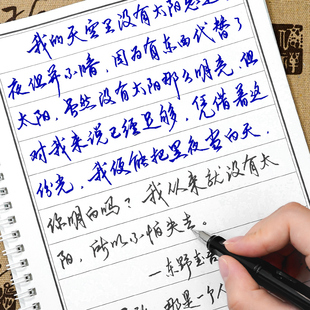 我的天空里没有太阳总是
夜但并不暗，因为有东西代替了
太阳，虽然没有太阳那么明亮但
对我来说已经足够，凭借着这
份光，我便能把黑夜当白天，
你明白吗？我从来就没有太
阳，所以不怕失去。
—东野圭吾
那是一个人